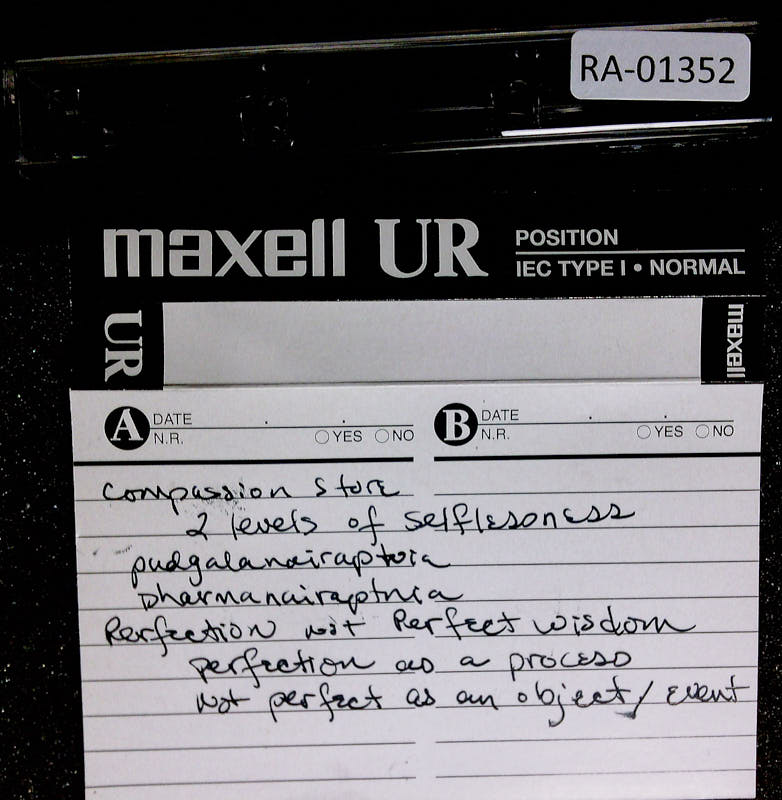 RA-01352
maxell UR
POSITION
IEC TYPE I • NORMAL
UR
maxell
A DATE
N.R. YES NO
B DATE
N.R. YES NO
Compassion Store
2 levels of selflessness
pudgalanairaptvia
Dharmanairaptnia
Perfection not Perfect wisdom
perfection as a process
not perfect as an object/event